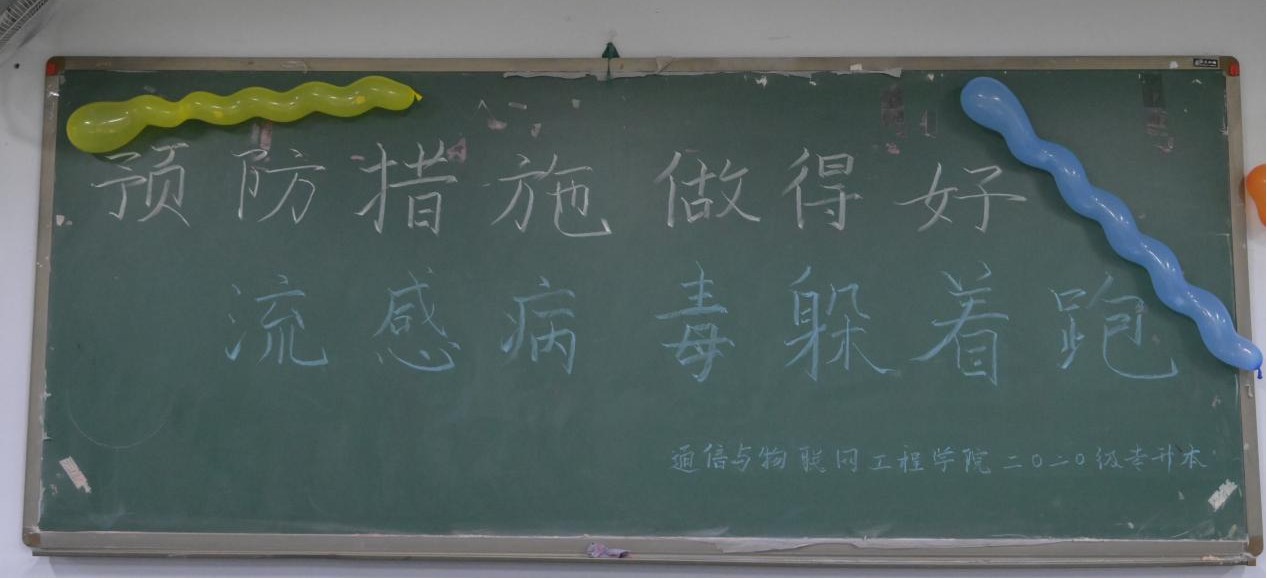 预防措施做得好
流感病毒躲着跑
通信与物联网工程学院二〇二〇级专升本